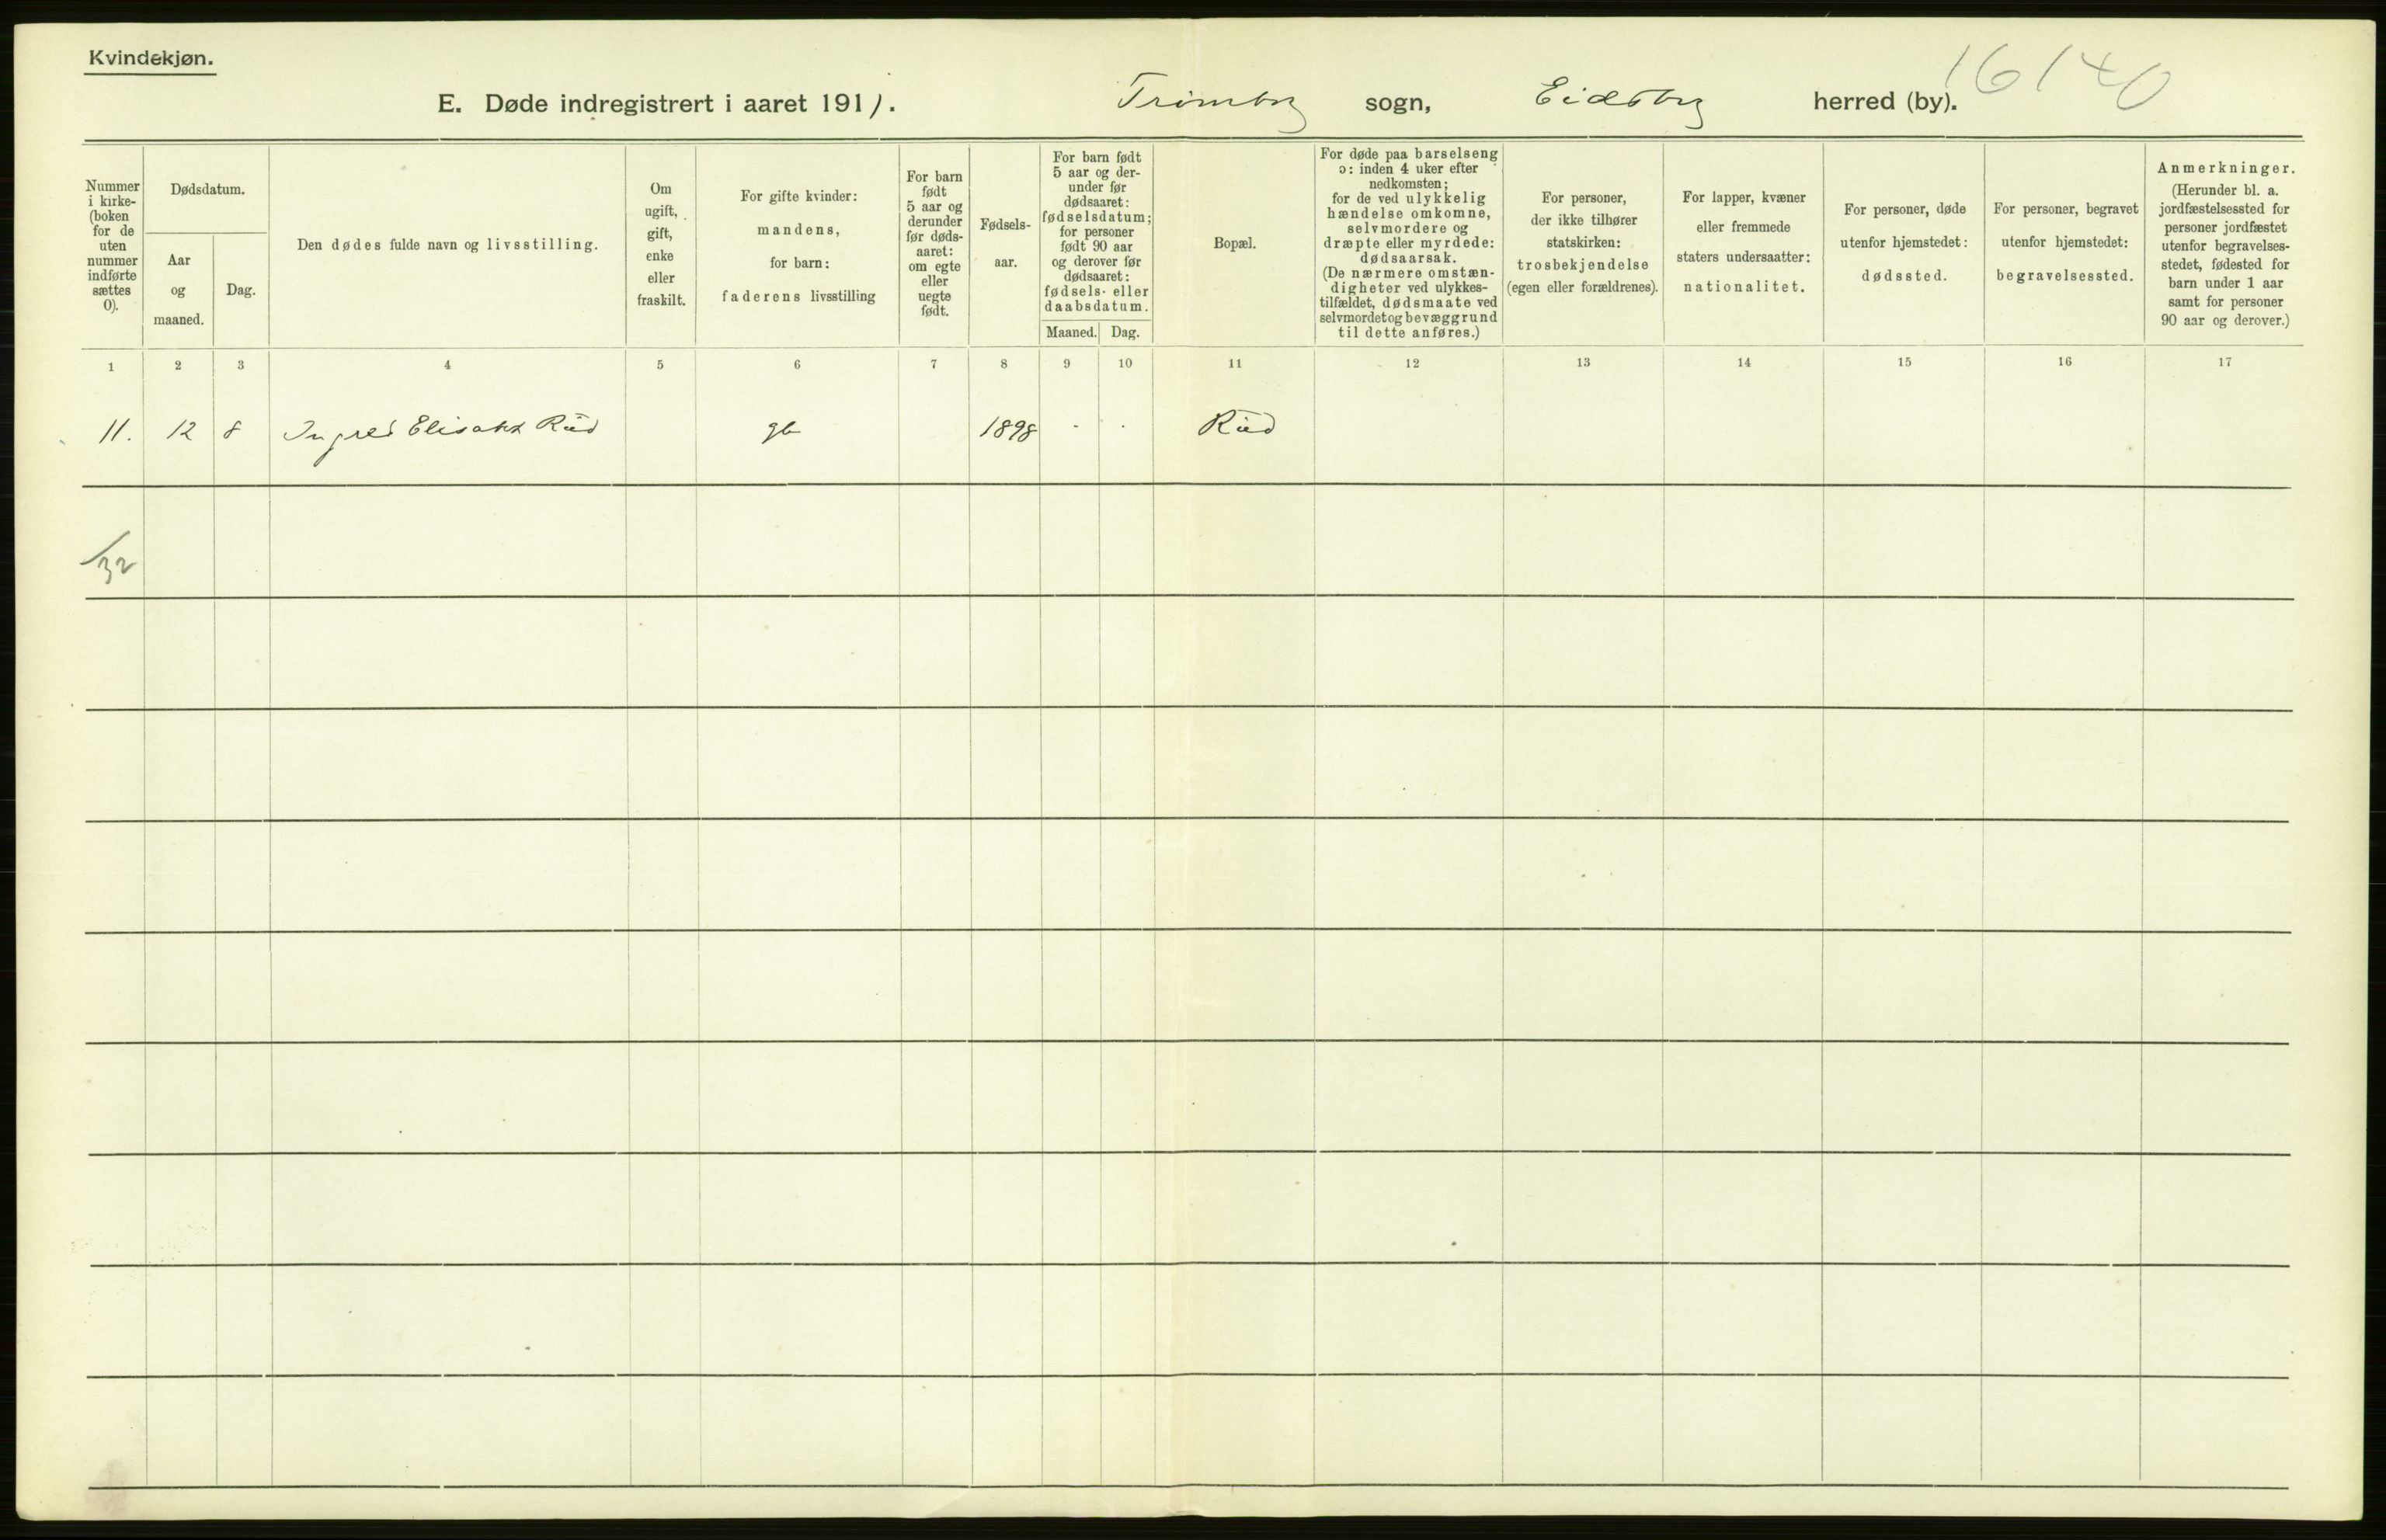 Kvindekjøn.
16140
E. Døde indregistrert i aaret 1911. Trømborg sogn, Eidsberg herred (by).
Nummer i kirke-(boken for de uten nummer indførte sættes 0).
Dødsdatum.
Aar og maaned.
Dag.
Den dødes fulde navn og livsstilling.
Om ugift, gift, enke eller fraskilt.
For gifte kvinder: mandens, for barn: faderens livsstilling
For barn født 5 aar og derunder før døds-aaret: om egte eller uegte født.
Fødsels-aar.
For barn født 5 aar og der-under før dødsaaret: fødselsdatum; for personer født 90 aar og derover før dødsaaret: fødsels- eller daabsdatum.
Maaned. Dag.
Bopæl.
For døde paa barselseng ɔ: inden 4 uker efter nedkomsten; for de ved ulykkelig hændelse omkomne, selvmordere og dræpte eller myrdede: dødsaarsak. (De nærmere omstæn-digheter ved ulykkes-tilfældet, dødsmaate ved selvmordet og bevæggrund til dette anføres.)
For personer, der ikke tilhører statskirken: trosbekjendelse (egen eller forældrenes).
For lapper, kvæner eller fremmede staters undersaatter: nationalitet.
For personer, døde utenfor hjemstedet: dødssted.
For personer, begravet utenfor hjemstedet: begravelsessted.
Anmerkninger. (Herunder bl. a. jordfæstelsessted for personer jordfæstet utenfor begravelses-stedet, fødested for barn under 1 aar samt for personer 90 aar og derover.)
1 2 3 4 5 6 7 8 9 10 11 12 13 14 15 16 17
11. 12 8 Ingred Elisabet Rud gb 1898 - . Rud
32